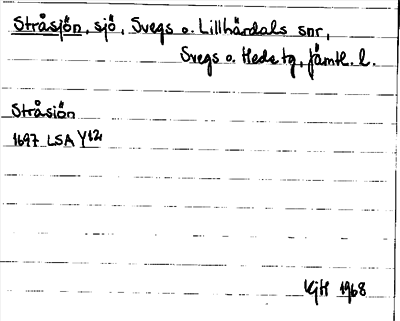 Stråsjön, sjö, Svegs o. Lillhärdals snr,
Svegs o. Hede tg, Jämtl. l.
Stråsiön
1697 LSA Y12
KjH 1968